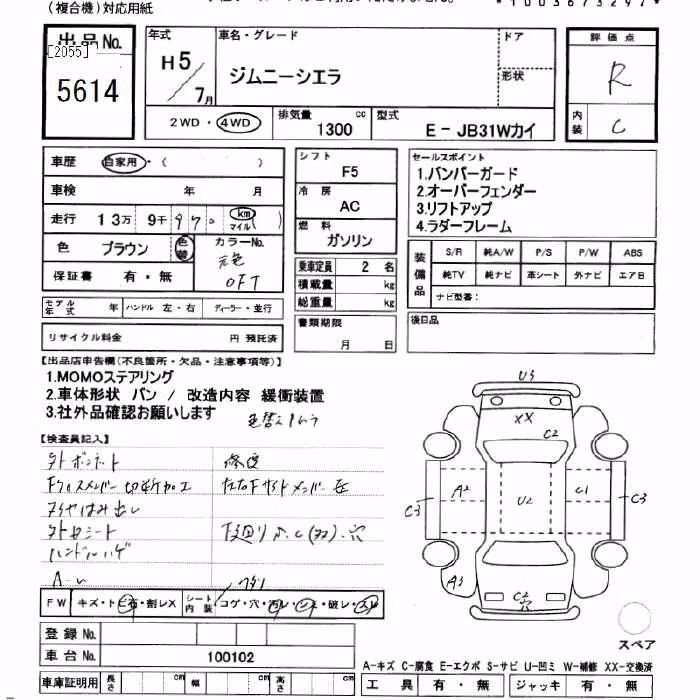 (複合機)対応用紙
*1003673297*
出品No. 年式 車名・グレード ドア 評価点
[2055]
5614
H5/7月 ジムニーシエラ
形状
R
内装 C
2WD・4WD 排気量 1300 cc 型式 E－JB31Wカイ
車歴 自家用・( )
シフト F5
セールスポイント
1.バンパーガード
2.オーバーフェンダー
3.リフトアップ
4.ラダーフレーム
車検 年 月
冷房 AC
走行 13万 9千 970 km マイル ( )
燃料 ガソリン
色 ブラウン 色替 カラーNo. 元色 OFT
保証書 有・無
乗車定員 2 名
積載量 kg
総重量 kg
装備品 S/R 純A/W P/S P/W ABS
純TV 純ナビ 革シート 外ナビ エアB
ナビ型番:
モデル年式 ハンドル 左・右 ディーラー・並行
書類期限 月 日
後日品
リサイクル料金 円 預託済
【出品店申告欄(不良箇所・欠品・注意事項等)】
1.MOMOステアリング
2.車体形状 バン / 改造内容 緩衝装置
3.社外品確認お願いします
色替えムラ
【検査員記入】
外ボンネット 修復
Fクロスメンバー切断加工 左右Fサイドメンバー歪
タイヤはみ出し
外セミシート 下廻りふしC(ヌリ)、穴
ハンドルハゲ
FW キズ・トビ石・割レX シート内装 コゲ・穴・汚レ・シミ・破レ・スレ
登録No.
車台No. 100102
車庫証明用 長さ cm 幅 cm 高さ cm
U3
XX
C2
A2 U2 C1
C3 C3
A3
C2
穴
スペア
A-キズ C-腐食 E-エクボ S-サビ U-凹ミ W-補修 XX-交換済
工具 有・無 ジャッキ 有・無